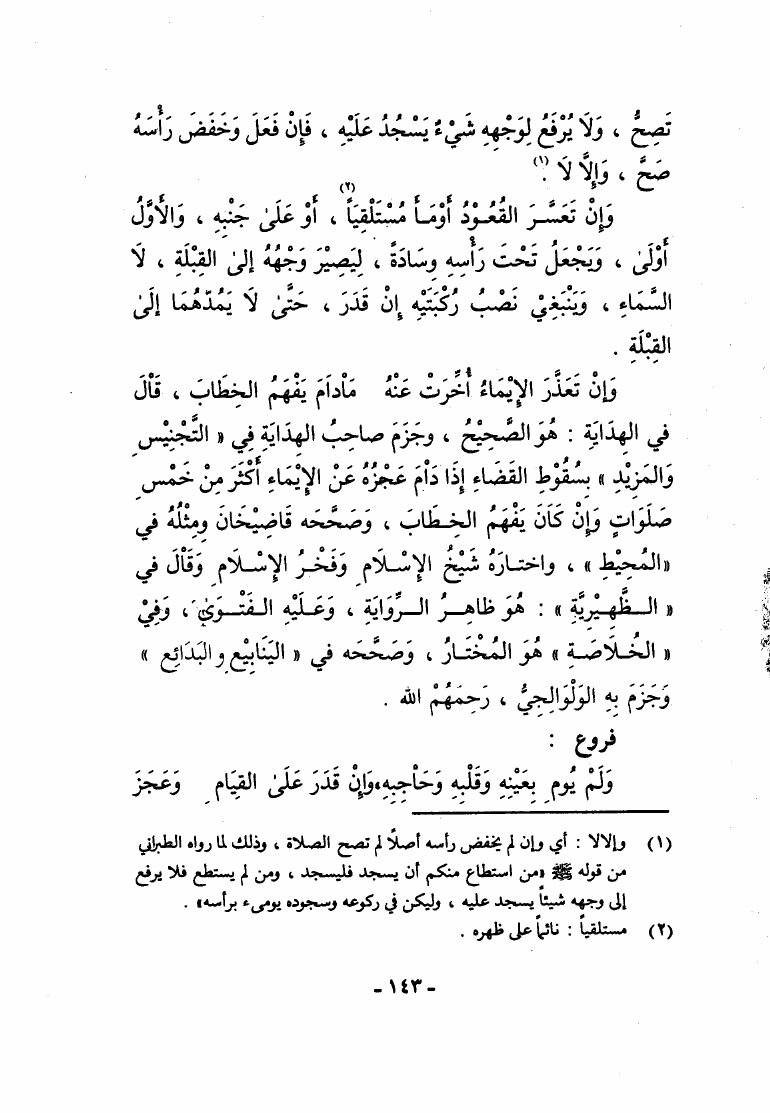 تَصِحُّ ، وَلَا يُرْفَعُ لِوَجْهِهِ شَيْءٌ يَسْجُدُ عَلَيْهِ ، فَإِنْ فَعَلَ وَخَفَضَ رَأْسَهُ
صَحَّ ، وَإِلَّا لَا (١) .
وَإِنْ تَعَسَّرَ القُعُوْدُ أَوْمَأَ مُسْتَلْقِيَاً (٢) ، أَوْ عَلَىٰ جَنْبِهِ ، وَالأَوَّلُ
أَوْلَىٰ ، وَيَجْعَلُ تَحْتَ رَأْسِهِ وِسَادَةً ، لِيَصِيْرَ وَجْهُهُ إِلىٰ القِبْلَةِ ، لَا
السَّمَاءِ ، وَيَنْبَغِيْ نَصْبُ رُكْبَتَيْهِ إِنْ قَدَرَ ، حَتَّىٰ لَا يَمُدَّهُمَا إِلىٰ
القِبْلَةِ .
وَإِنْ تَعَذَّرَ الإِيْمَاءُ أُخِّرَتْ عَنْهُ مَاْدَامَ يَفْهَمُ الخِطَابَ ، قَالَ
في الهِدَايَةِ : هُوَ الصَّحِيْحُ ، وجَزَمَ صاحِبُ الهِدَايَةِ فِي « التَّجْنِيْسِ
وَالمَزِيْدِ » بِسُقُوْطِ القَضَاءِ إِذَا دَاْمَ عَجْزُهُ عَنْ الإِيْمَاءِ أَكْثَرَ مِنْ خَمْسِ
صَلَوَاتٍ وَإِنْ كَانَ يَفْهَمُ الخِطَابَ ، وَصَحَّحَه قَاضِيْخَانَ وَمِثْلُهُ في
«المُحِيْطِ» ، واختـارَهُ شَيْخُ الإِسْـلَامِ وَفَخْـرُ الإِسْـلَامِ وَقَالَ في
« الـظَّهِيْرِيَّةِ » : هُوَ ظاهِـرُ الـرِّوَايَةِ ، وَعَـلَيْهِ الـفَتْـوَىٰ ، وَفِيْ
« الخُـلَاصَـةِ » هُوَ المُخْتَـارُ ، وَصَحَّحَه في « اليَنَابِيْعِ وَالبَدَائِعِ »
وَجَزَمَ بِهِ الوَلْوَالِجِيُّ ، رَحِمَهُمْ الله .
فروع :
وَلَمْ يُومِ بِعَيْنِهِ وَقَلْبِهِ وَحَاْجِبِهِ،وَإِنْ قَدَرَ عَلَىٰ القِيَامِ وَعَجَزَ
(١) وإلالا : أي وإن لم يخفض رأسه أصلاً لم تصح الصلاة ، وذلك لما رواه الطبراني
من قوله ﷺ «من استطاع منكم أن يسجد فليسجد ، ومن لم يستطع فلا يرفع
إلى وجهه شيئاً يسجد عليه ، وليكن في ركوعه وسجوده يومىء برأسه» .
(٢) مستلقياً : نائماً على ظهره .
- ١٤٣ -